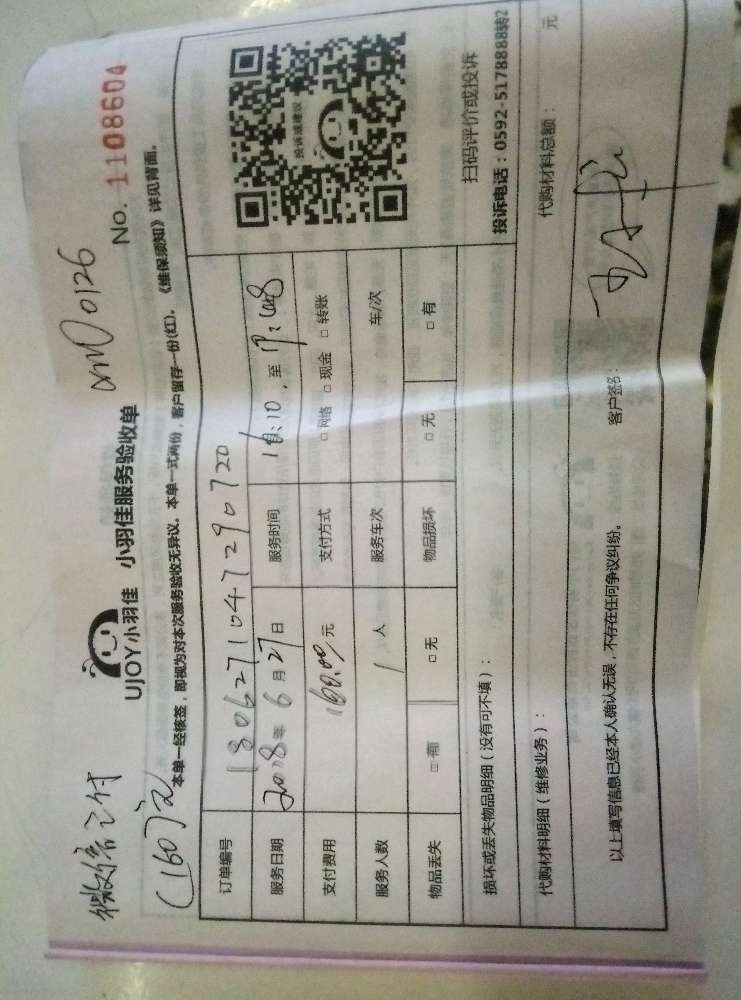 微信已付
(160)元
xm00126
UJOY小羽佳 小羽佳服务验收单
No. 1108604
本单一经核签，即视为对本次服务验收无异议。本单一式两份，客户留存一份(红)。《维保须知》详见背面。
订单编号 1806271047290720
服务日期 2018年6月27日 服务时间 16:10，至17:48
支付费用 160.00元 支付方式 □网络 □现金 □转账
服务人数 1人 服务车次 车/次
物品丢失 □有 □无 物品损坏 □无 □有
投诉或建议
扫码评价或投诉
投诉电话：0592-5178888转2
损坏或丢失物品明细（没有可不填）：
代购材料明细（维修业务）： 代购材料总额： 元
以上填写信息已经本人确认无误，不存在任何争议纠纷。 客户签名：